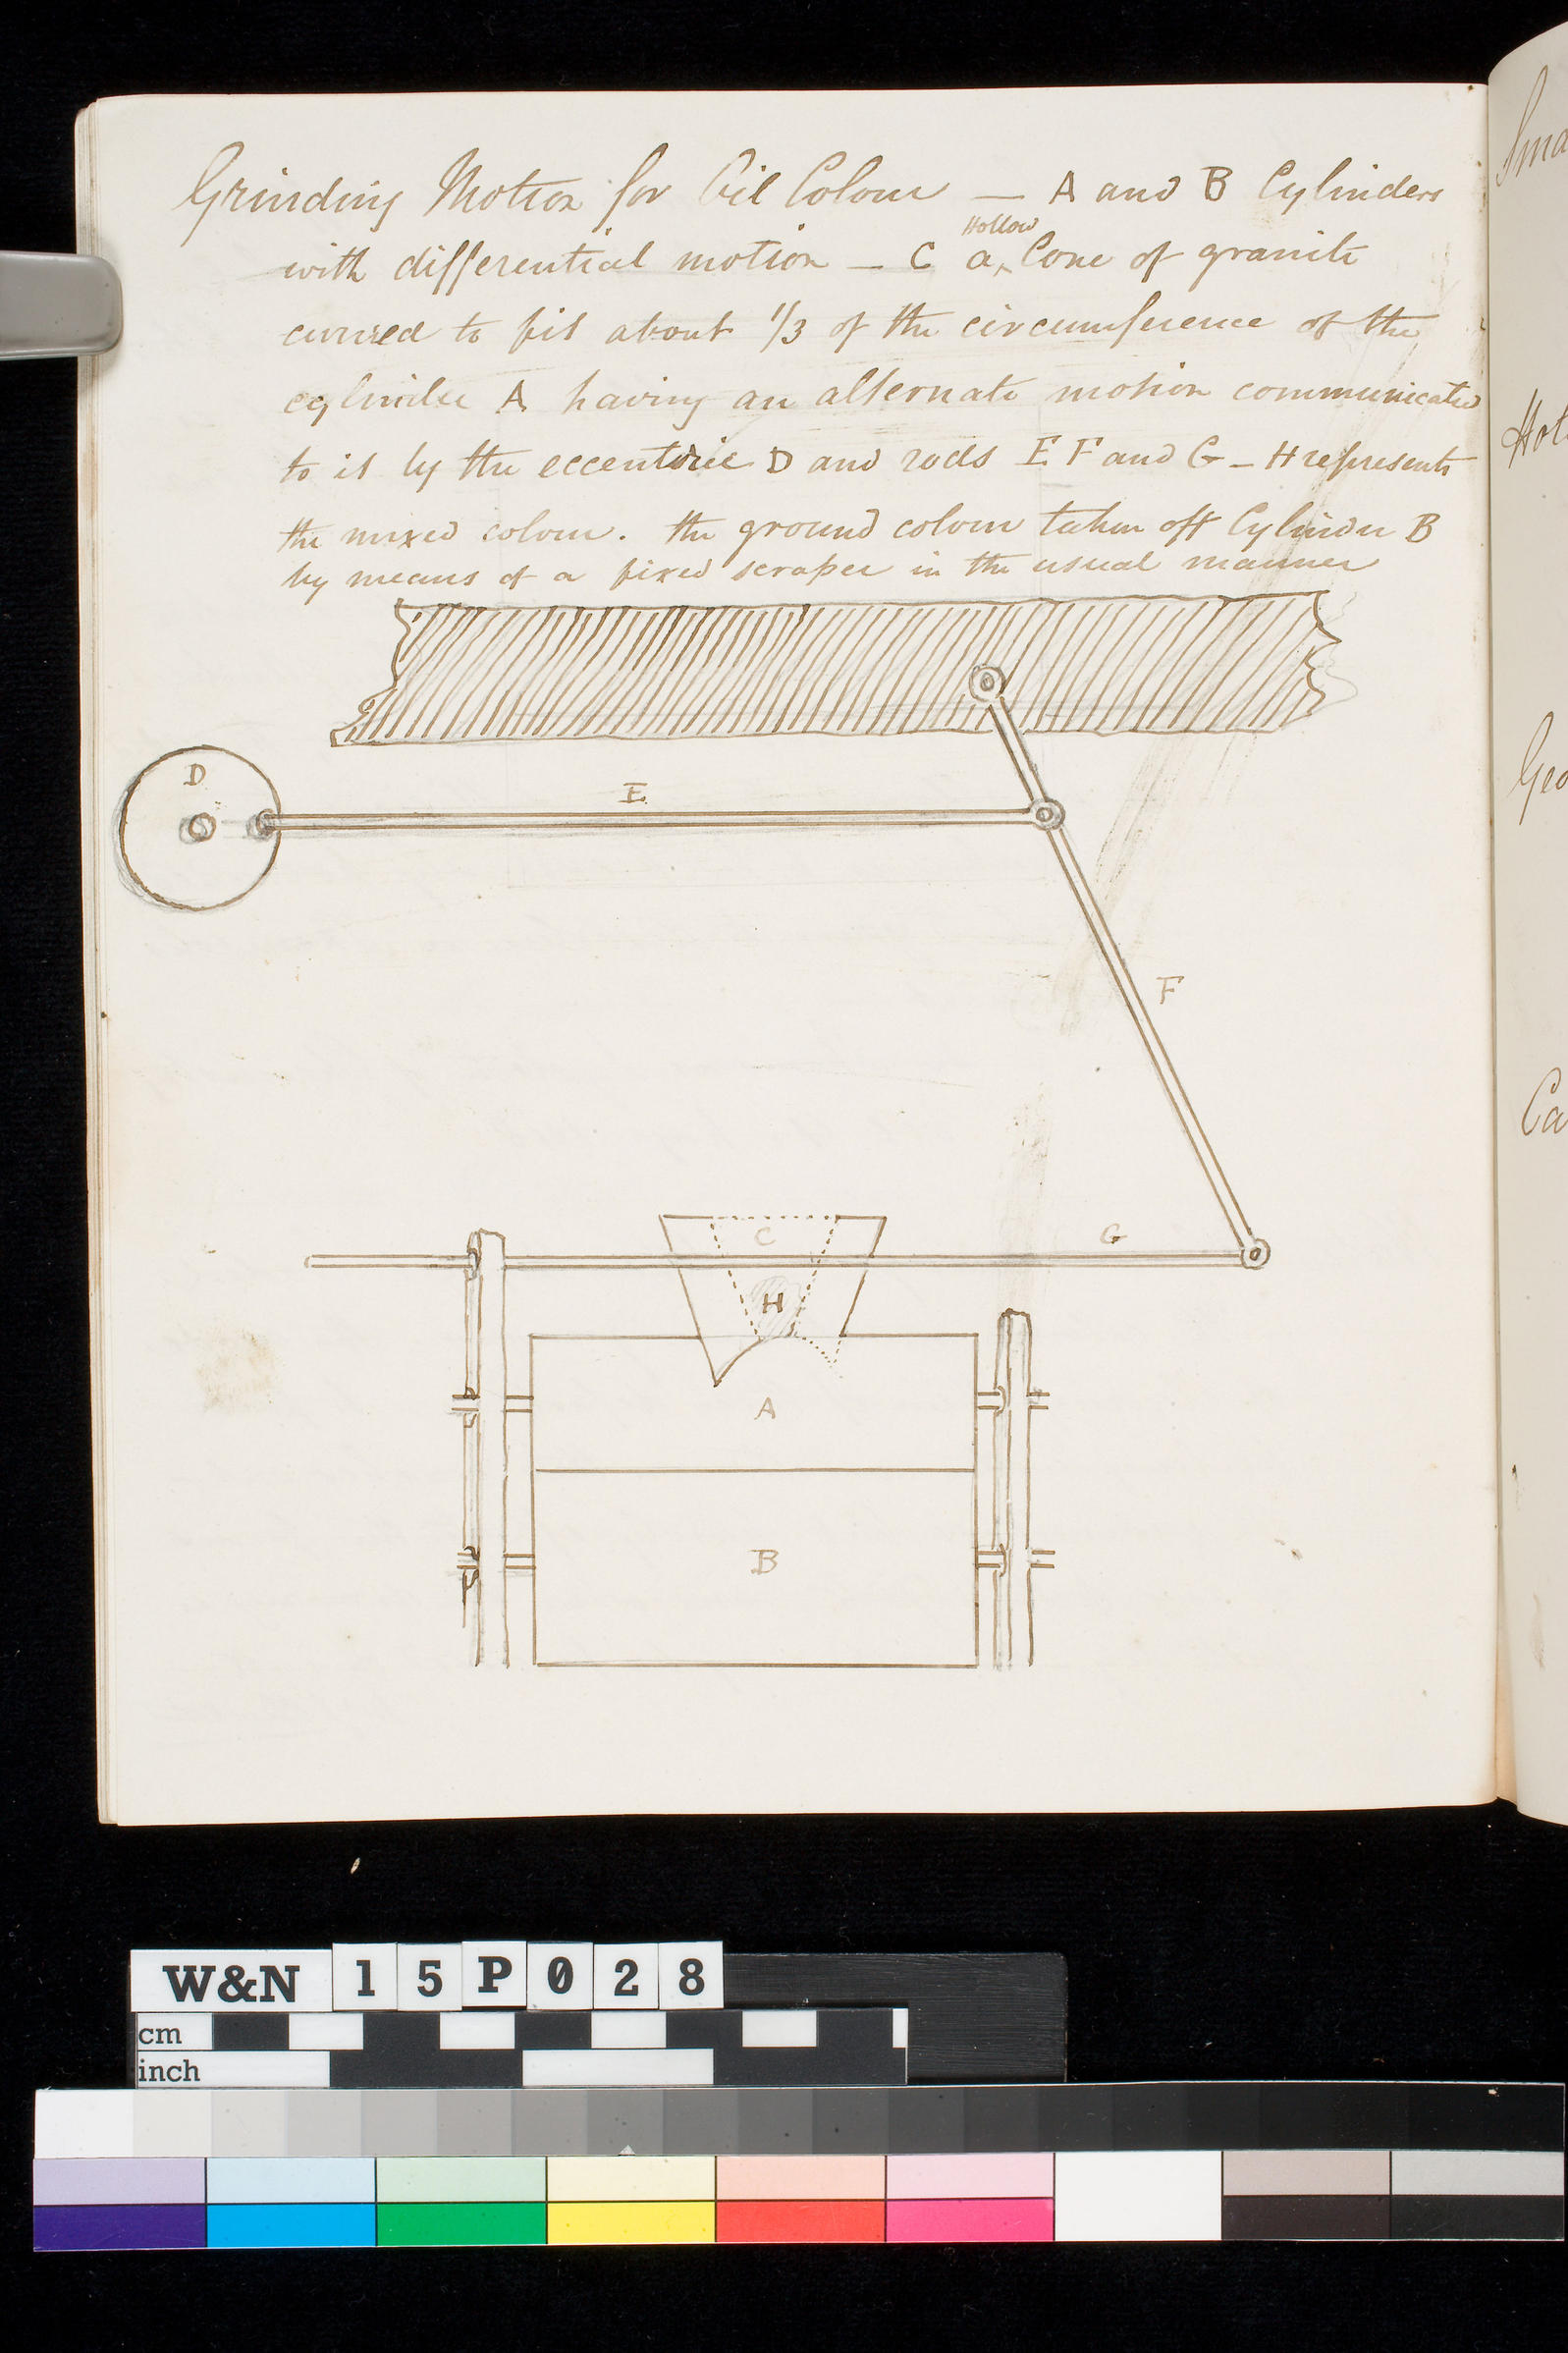 Grinding Motion for Oil Colour — A and B Cylinders
with differential motion — C a Hollow Cone of granite
curved to fit about 1/3 of the circumference of the
cylinder A having an alternate motion communicated
to it by the eccentric D and rods E F and G — H represents
the mixed colour. the ground colour taken off Cylinder B
by means of a fixed scraper in the usual manner
D
E
F
C
G
H
A
B
Sma
Hot
Geo
Ca
W&N 15P028
cm
inch